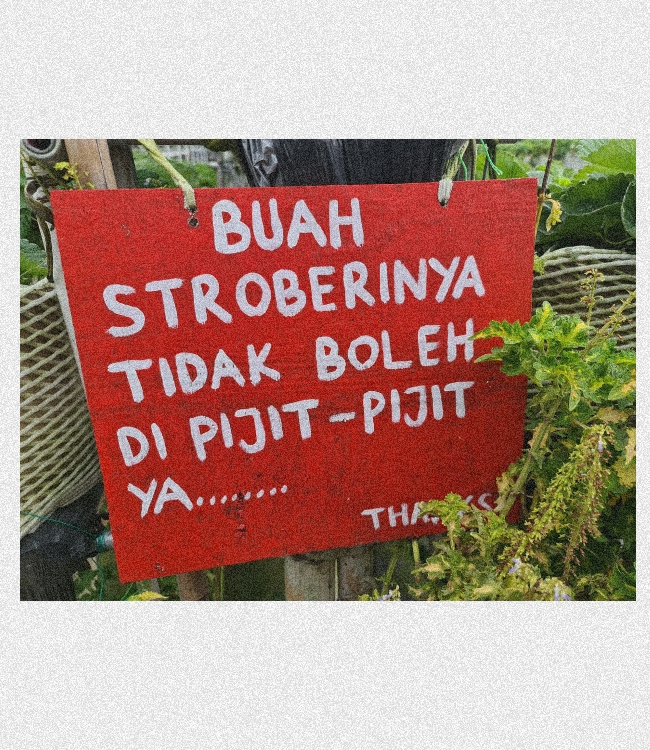 BUAH
STROBERINYA
TIDAK BOLEH
DI PIJIT-PIJIT
YA........
THANKS